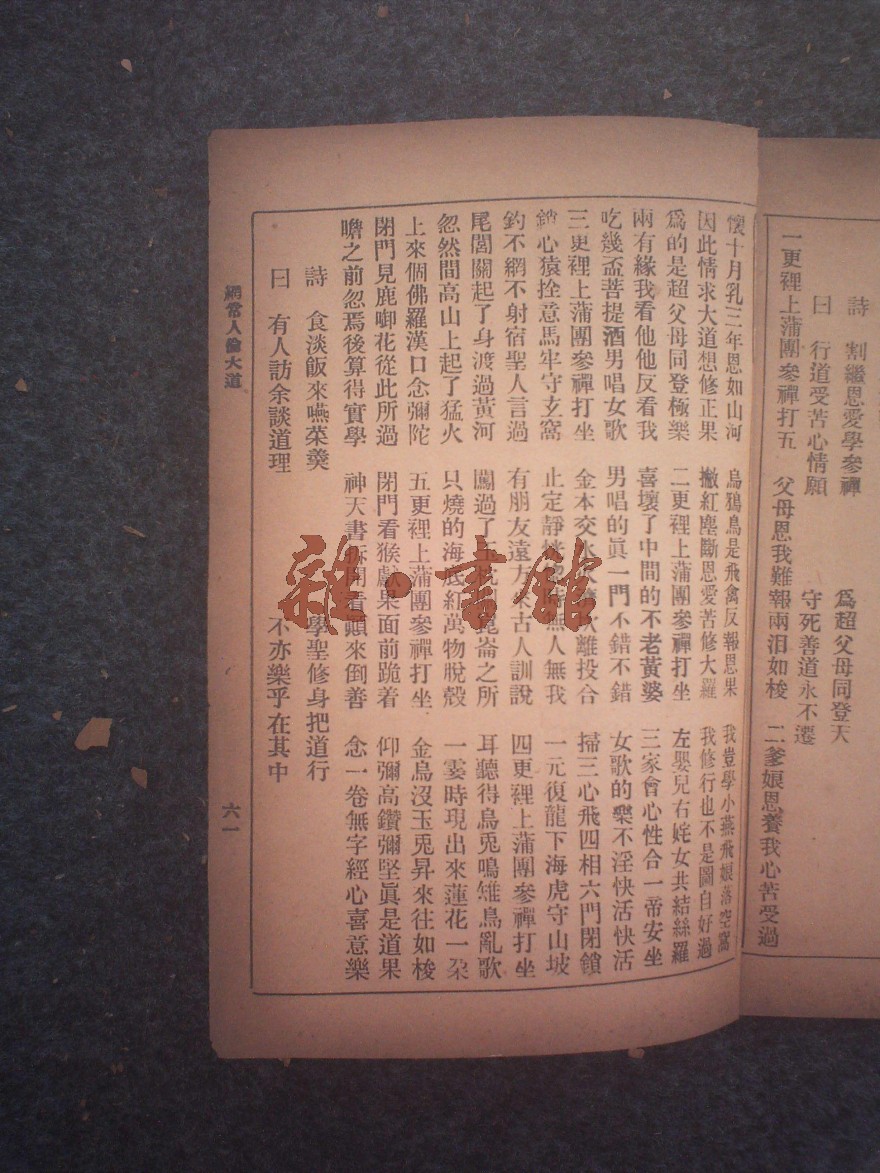 詩　割繼恩愛學參禪　為超父母同登天
曰　行道受苦心情願　守死善道永不遷
一更裡上蒲團參禪打五　父母恩我難報兩泪如梭　二爹娘恩養我心苦受過
懷十月乳三年恩如山河　烏鴉鳥是飛禽反報恩果　我豈學小燕飛娘落空窩
因此情求大道想修正果　撇紅塵斷恩愛苦修大羅　我修行也不是圖自好過
為的是超父母同登極樂　二更裡上蒲團參禪打坐　左嬰兒右姹女共結絲羅
兩有緣我看他他反看我　喜壞了中間的不老黃婆　三家會心性合一帝安坐
吃幾盃菩提酒男唱女歌　男唱的眞一門不錯不錯　女歌的樂不淫快活快活
三更裡上蒲團參禪打坐　金本交水火　離投合　掃三心飛四相六門閉鎖
鎖心猿拴意馬牢守玄窩　止定靜　無人無我　一元復龍下海虎守山坡
釣不網不射宿聖人言過　有朋友遠方來古人訓說　四更裡上蒲團參禪打坐
尾閭關起了身渡過黃河　闖過了玉枕　崑崙之所　耳聽得烏兎鳴雉鳥亂歌
忽然間高山上起了猛火　只燒的海底紅萬物脫殼　一霎時現出來蓮花一朶
上來個佛羅漢口念彌陀　五更裡上蒲團參禪打坐　金烏沒玉兎昇來往如梭
閉門見鹿啣花從此所過　閉門看猴獻果面前跪着　仰彌高鑽彌堅眞是道果
瞻之前忽焉後算得實學　神天書拆開看顚來倒善　念一卷無字經心喜意樂
詩　食淡飯來嚥菜羹　學聖修身把道行
曰　有人訪余談道理　不亦樂乎在其中
綱常人倫大道
六一
雜·書館